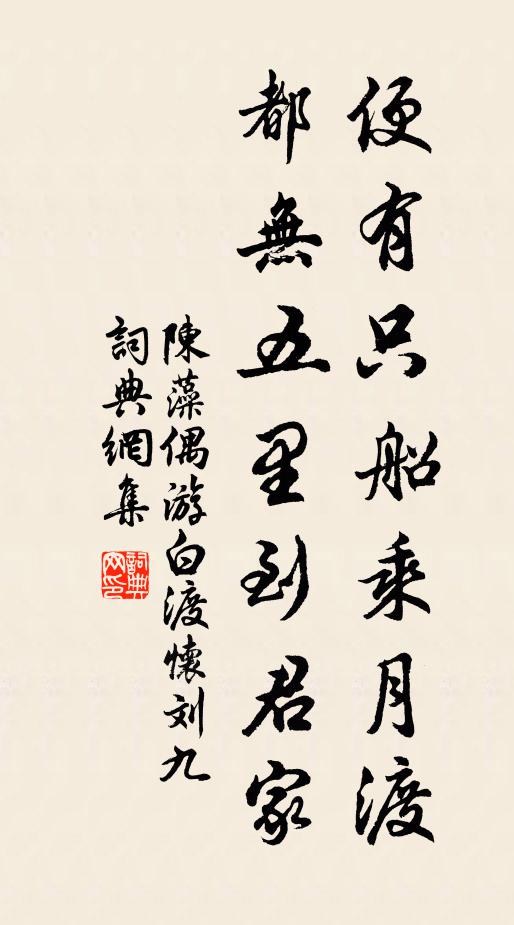 便有只船乘月渡
都無五里到君家
陳藻偶游白渡懷刘九
詞典網集
詞典网印